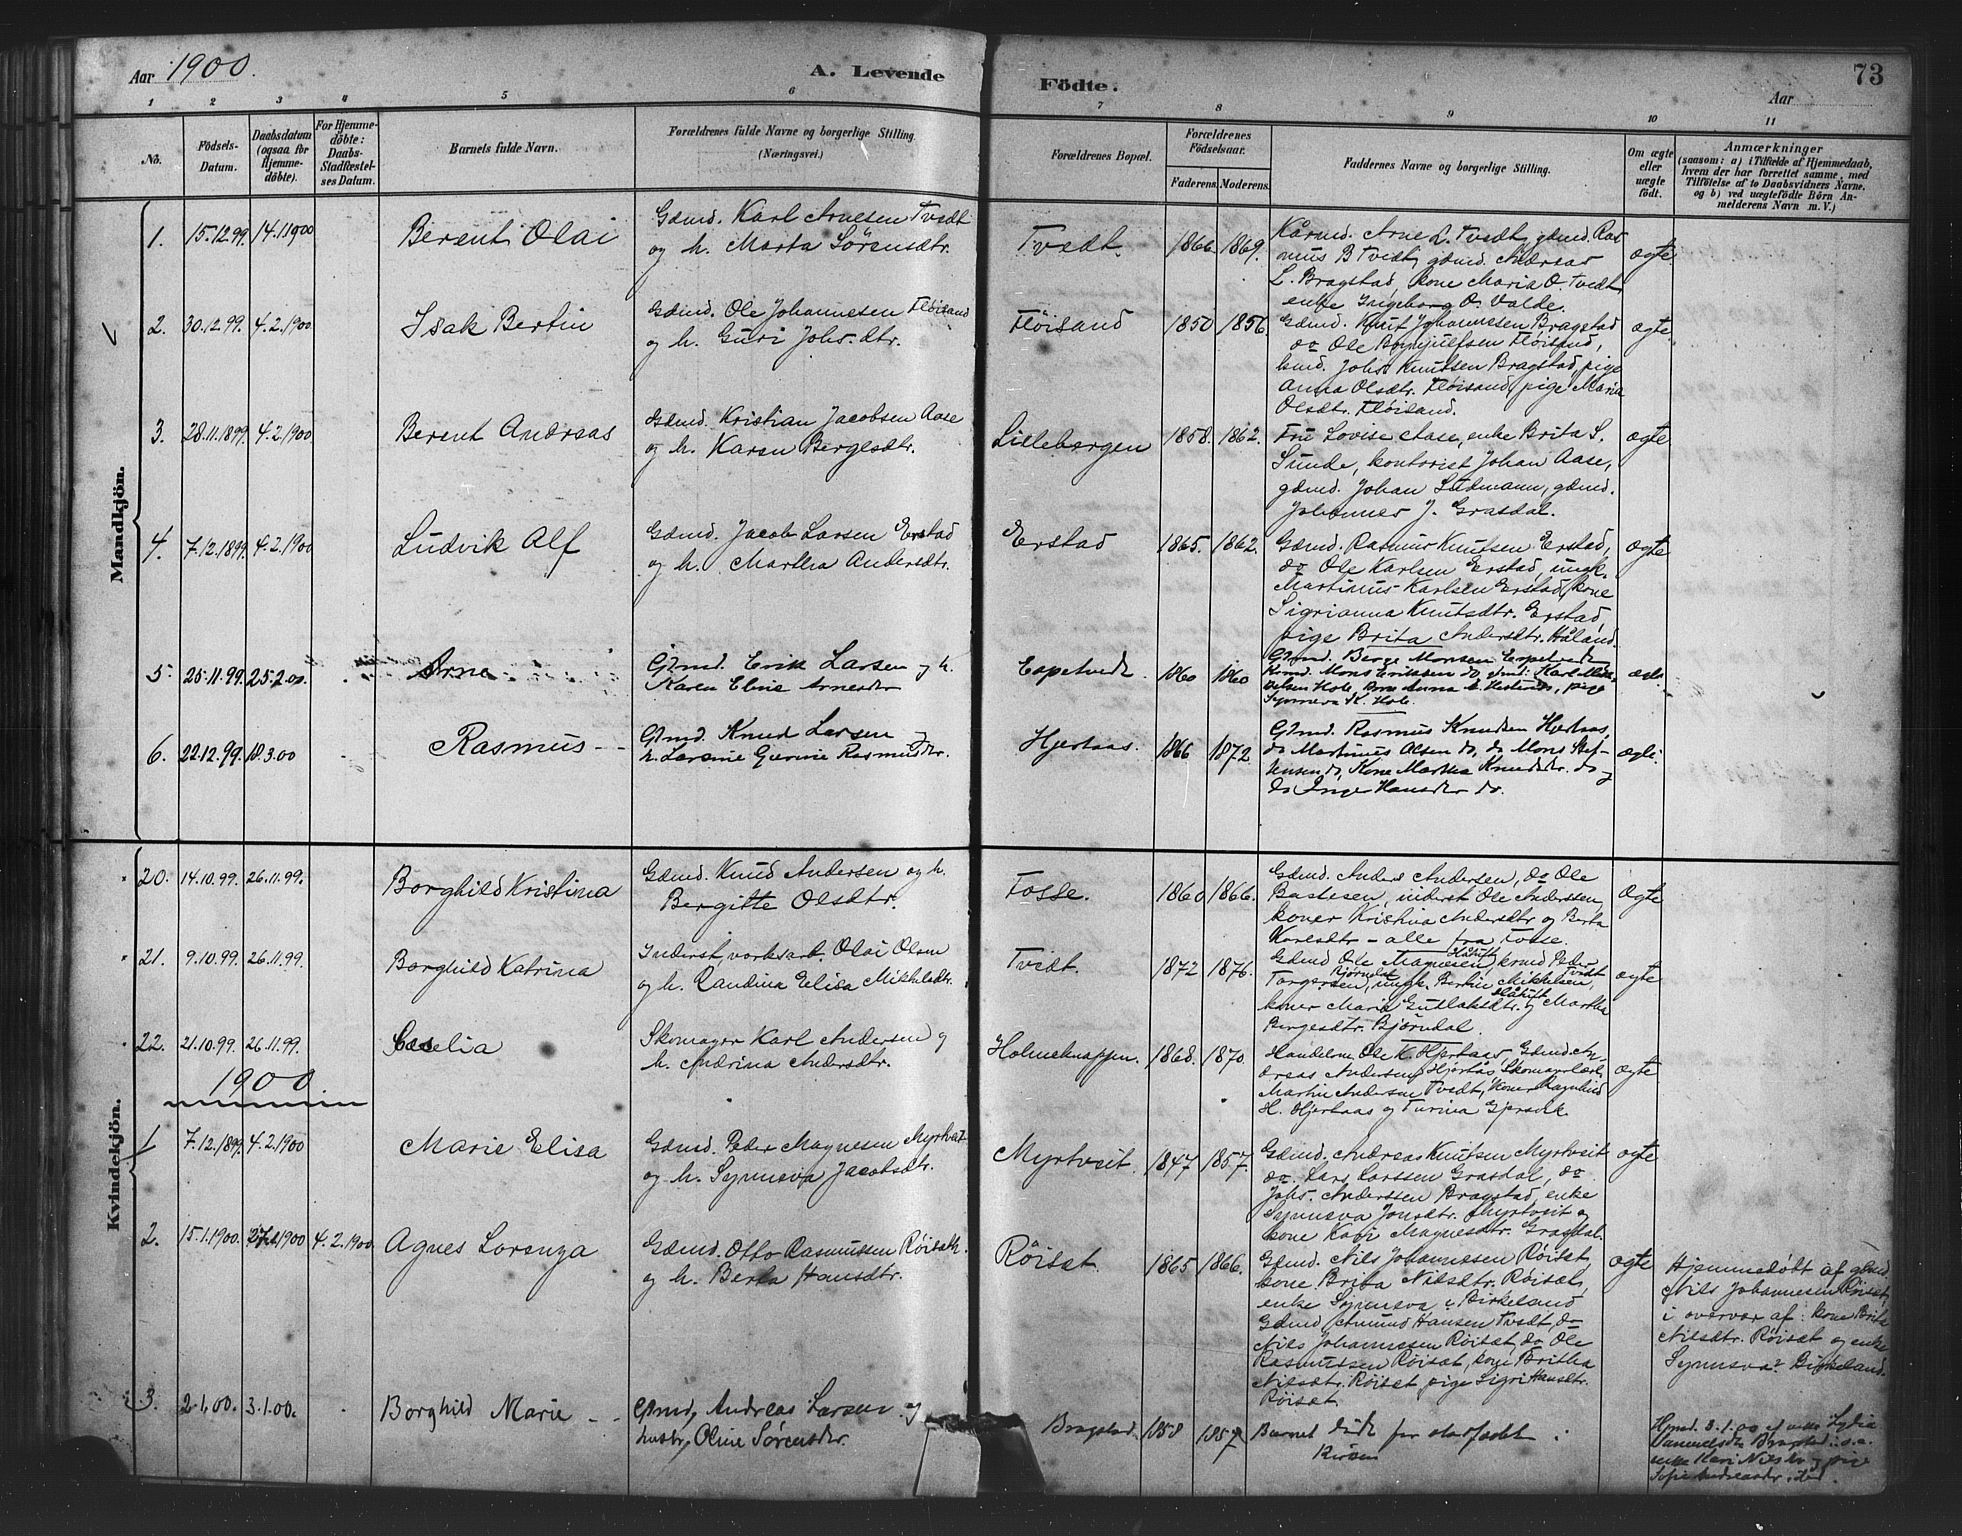 Aar 1900.
A. Levende
Födte.
73
Aar
1 2 3 4 5 6 7 8 9 10 11
No.
Födsels-
Datum.
Daabsdatum
(ogsaa for
Hjemme-
döbte).
For Hjemme-
döbte:
Daabs-
Stadfæstel-
ses Datum.
Barnets fulde Navn.
Forældrenes fulde Navne og borgerlige Stilling.
(Næringsvei.)
Forældrenes Bopæl.
Forældrenes
Födselsaar.
Faderens. Moderens.
Faddernes Navne og borgerlige Stilling.
Om ægte
eller
uægte
födt.
Anmærkninger
(saasom: a) i Tilfælde af Hjemmedaab,
hvem der har forrettet samme, med
Tilföielse af to Daabsvidners Navne,
og b) ved uægtefödte Börn An-
melderens Navn m. V.)
Mandkjön.
1. 15.12.99. 14.1.1900 Berent Olai
Gæmd. Karl Arnesen Tvedt
og h. Marta Sörensdtr.
Tvedt. 1866. 1869.
Kårmd. Arne L. Tvedt, gæmd. Ras
mus B Tvedt, gæmd. Andreas
L. Bragstad, kone Maria O. Tvedt,
enke Ingeborg O. Valde.
ægte.
2. 30.12.99. 4.2.1900. Isak Bertin
Gæmd. Ole Johannesen Flöisand
og h. Guri Johs.dtr.
Flöisand 1850 1856.
Gæmd. Knut Johannesen Bragstad
do Ole Flöisand,
Johs Knutsen Bragstad, pige
Anna Olsdtr. Flöisand, pige Maria
Olsdtr. Flöisand.
ægte.
3. 28.11.1899. 4.2.1900. Berent Andreas
Gæmd. Kristian Jacobsen Aase
og h. Karen Bergesdtr.
Lillebergen 1858. 1862.
Fru Lovise Aase, enke Brita S.
Sunde, kontorist Johan Aase,
gæmd. Johan gæmd.
Johannes J. Grasdal.
ægte
4. 7.12.1899. 4.2.1900 Ludvik Alf
Gæmd. Jacob Larsen Erstad
og h. Martha Andersdtr.
Erstad 1865. 1862.
Gæmd. Rasmus Knutsen Erstad,
do Ole Karlsen Erstad, ungk.
Martinus Karlsen Erstad, kone
Sigrianna Knutsdtr. Erstad,
pige Brita Andersdtr. Håland.
ægte
5. 25.11.99. 25.2.00. Arne
Gbmd. Erik Larsen og h.
Karen Eline Arnesdtr
Espetvedt. 1860 1860
Gbmd. Berge Monsen Espetvedt
Mons Eriksen do,
Anna pige
Synneva K. Hole.
6. 22.12.99. 18.3.00 Rasmus
Gbmd. Knud Larsen og
h. Larsine Gurine Rasmusdtr.
Hjertaas. 1866 1872.
Gbmd. Rasmus Knudsen Hjertaas,
do Martinus Olsen do, do Mons
do, Kone Martha Knudsdtr. do og
do Inge Hansdtr do.
ægte.
Kvindekjön.
20. 14.10.99. 26.11.99. Borghild Kristina
Gæmd. Knud Andersen og h.
Bergitte Olsdtr.
Fosse. 1860 1866.
Gæmd. Anders Andersen, do Ole
Bastesen, inderst Ole Anderssen,
koner Kristina Andersdtr og Berta
Karlsdtr – alle fra Fosse.
ægte
21. 9.10.99. 26.11.99. Borghild Katrina
Inderst, verksarb. Olai Olsen
og h. Randina Elisa Mikkelsdtr.
Tvedt. 1872 1876.
Gæmd Ole Magnesen, Peder
Torgersen, Bjørndal, ungk. Bertin Mikkelsen, Tvedt
koner Maria Gutlaksdtr. og Martha
Bergesdtr. Bjørndal.
ægte
22. 21.10.99. 26.11.99. Caselia
Skomager Karl Andersen og
h. Andrina Andersdtr.
Holmeknappen. 1868. 1870.
Handelsm. Ole K. Hjertaas, Gæmd. An-
dreas Andersen Hjertås, Skomagerlærl.
Martin Andersen Tvedt, koner Ragnhild
H. Hjertaas og Turina Gjersvik.
ægte
1900.
1 7.12.1899. 4.2.1900 Marie Elisa
Gæmd. Peder Magnesen Myrtveit
og h. Synneva Jacobsdtr.
Myrtveit. 1847 1857.
Gæmd. Andreas Knutsen Myrtveit
do. Lars Larssen Grasdal, do
Johs. Anderssen Bragstad, enke
Synneva Jonsdtr. Myrtveit og
kone Kari Magnesdtr. Grasdal.
ægte
2. 15.1.1900. 4.2.1900. Agnes Lorenza
Gæmd. Otto Rasmussen Röiset
og h. Berta Hansdtr.
Röiset. 1865 1866.
Gæmd. Nils Johannesen Röiset,
kone Brita Nilsdtr. Röiset,
enke Synneva Birkeland
Gæmd Amund Hansen Tvedt, do
Nils Johannessen Röiset, do Ole
Rasmussen Röiset, kone Britha
Nilsdtr. Röiset pige Sigri Hansdtr.
Röiset.
ægte
Hjemmedöbt af gæmd.
Nils Johannesen Röiset,
i overvær af: kone Brita
Nilsdtr. Röiset og enke
Synneva Birkeland.
3. 2.1.00. 3.1.00. Borghild Marie
Gbmd, Andreas Larsen og
hustr, Oline Sörensdtr.
Bragstad. 1858 1857
Barnet døde før stadfæstet i
Kirken
Hjmd. 3.1.00 af enke Lydia
Samuelsdtr Bragstad
enke Kari Nilsdtr og pige
Sofie Andreasdtr